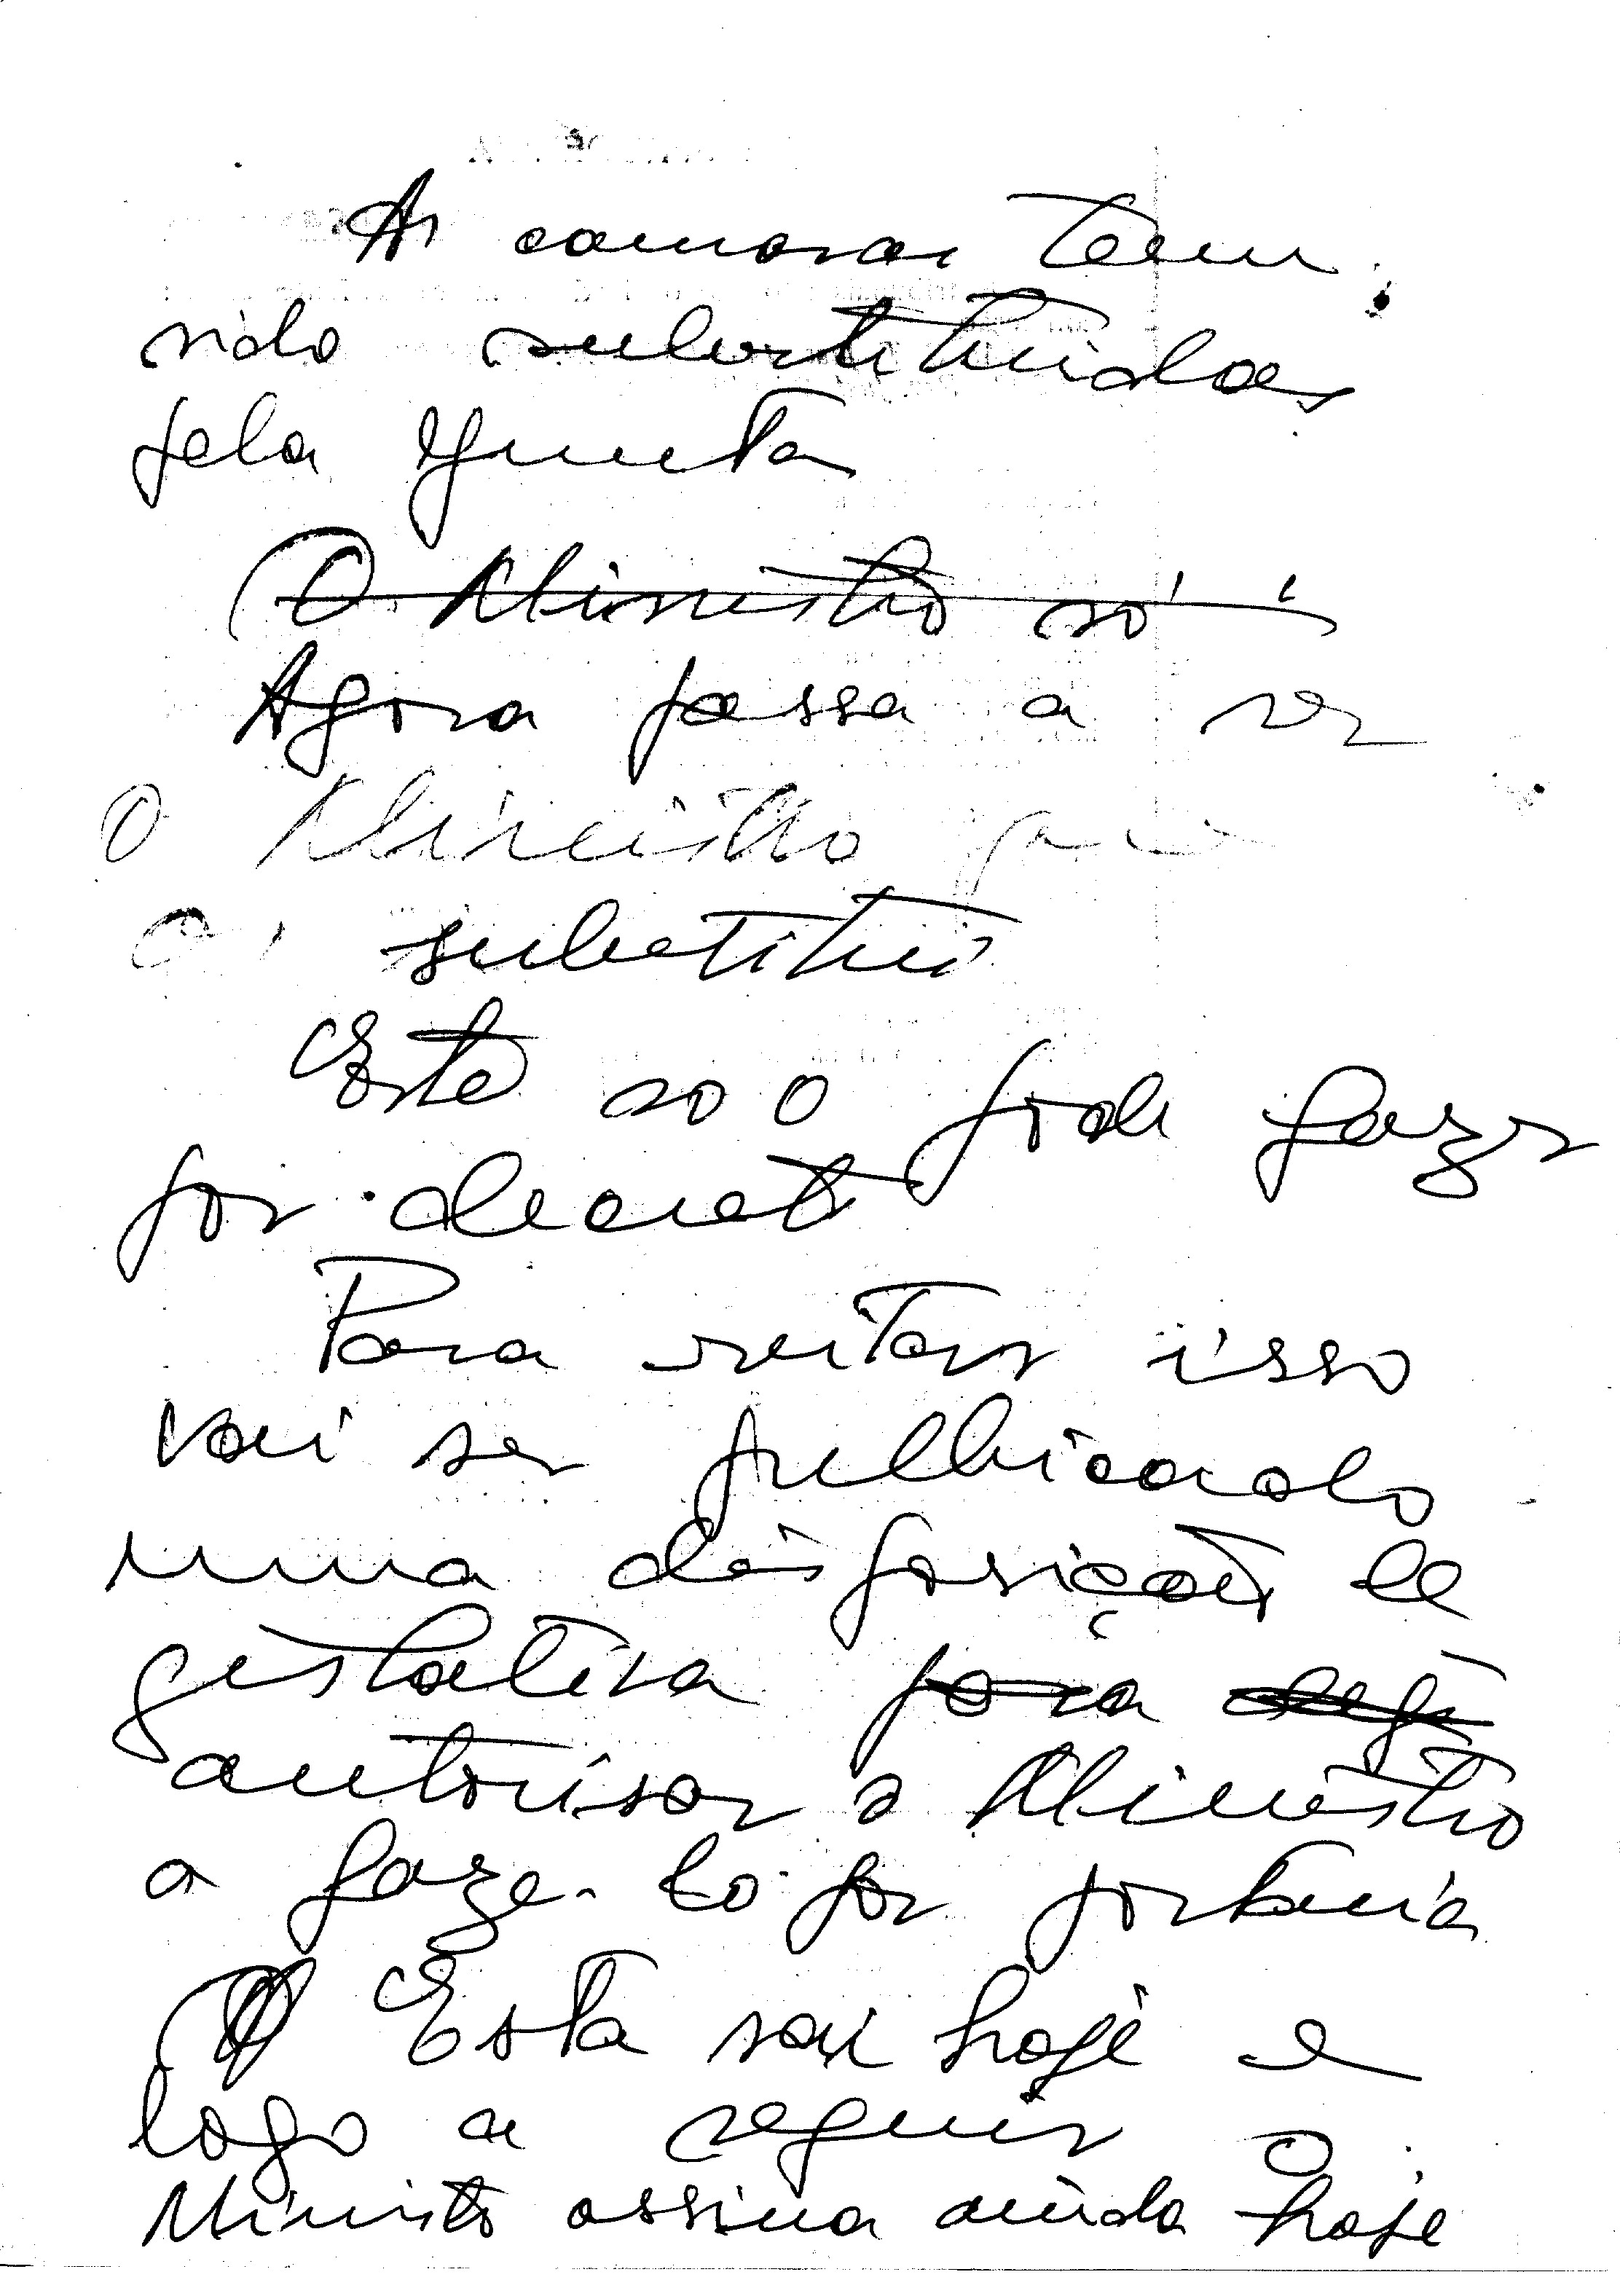 As camaras teem
sido substituidas
pela Junta
O Ministro só
Agora passa a ser
O Ministro que
as substitui
Este só o pode fazer
por decreto
Para evitar isso
vai ser publicado
uma disposição le
gislativa para
autorisar o Ministro
a faze-lo por portaria
Esta sai hoje e
logo a seguir o
Ministro assina ainda hoje